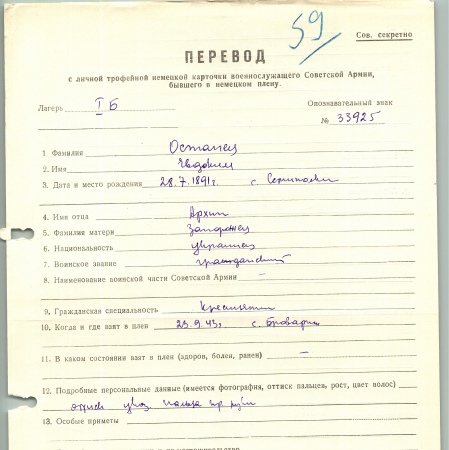 59
Сов. секретно
ПЕРЕВОД
с личной трофейной немецкой карточки военнослужащего Советской Армии,
бывшего в немецком плену.
Лагерь I Б
Опознавательный знак
№ 33925
1. Фамилия Остапец
2. Имя Евдоким
3. Дата и место рождения 28.7.1891г. с.
4. Имя отца Архип
5. Фамилия матери Запорожец
6. Национальность украинец
7. Воинское звание гражданский
8. Наименование воинской части Советской Армии —
9. Гражданская специальность Крестьянин
10. Когда и где взят в плен 23.9.43г. с. Бровары
11. В каком состоянии взят в плен (здоров, болен, ранен) —
12. Подробные персональные данные (имеется фотография, оттиск пальцев, рост, цвет волос)
оттиск указ. пальца пр руки
13. Особые приметы